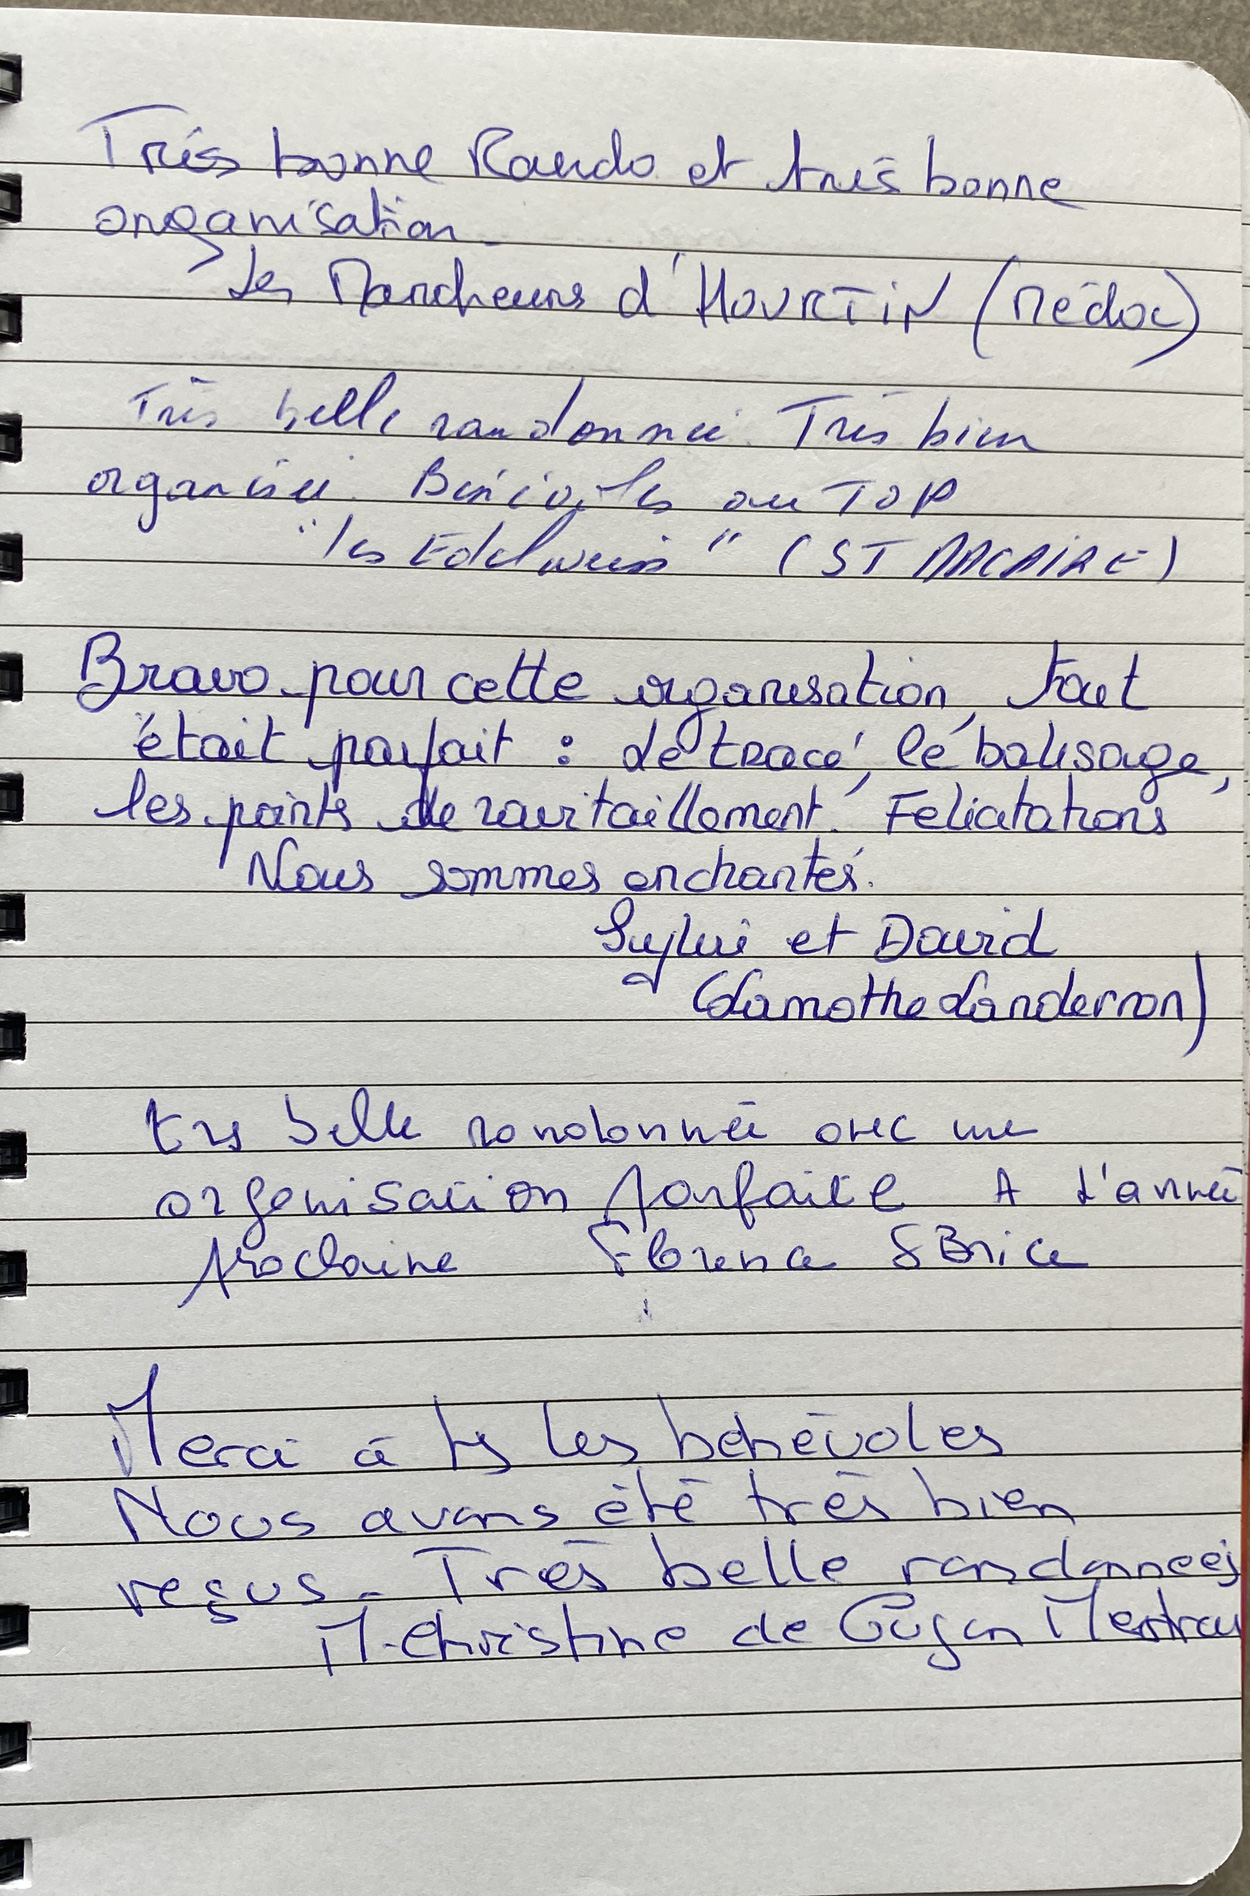 Très bonne Rando et très bonne
organisation.
Les Marcheurs d'HOURTIN (Médoc)
Très belle randonnée. Très bien
organisée. Bénévoles au TOP
"les Edelweiss" (ST MACAIRE)
Bravo pour cette organisation, tout
était parfait : le tracé, le balisage,
les points de ravitaillement. Félicitations
Nous sommes enchantés.
Sylvie et David
(Lamothe Landerron)
trs belle randonnée avec une
organisation parfaite A l'année
prochaine Florence & Brice
Merci à ts les bénévoles
Nous avons été très bien
reçus - Très belle randonnées
M-Christine de Gujan Mestras